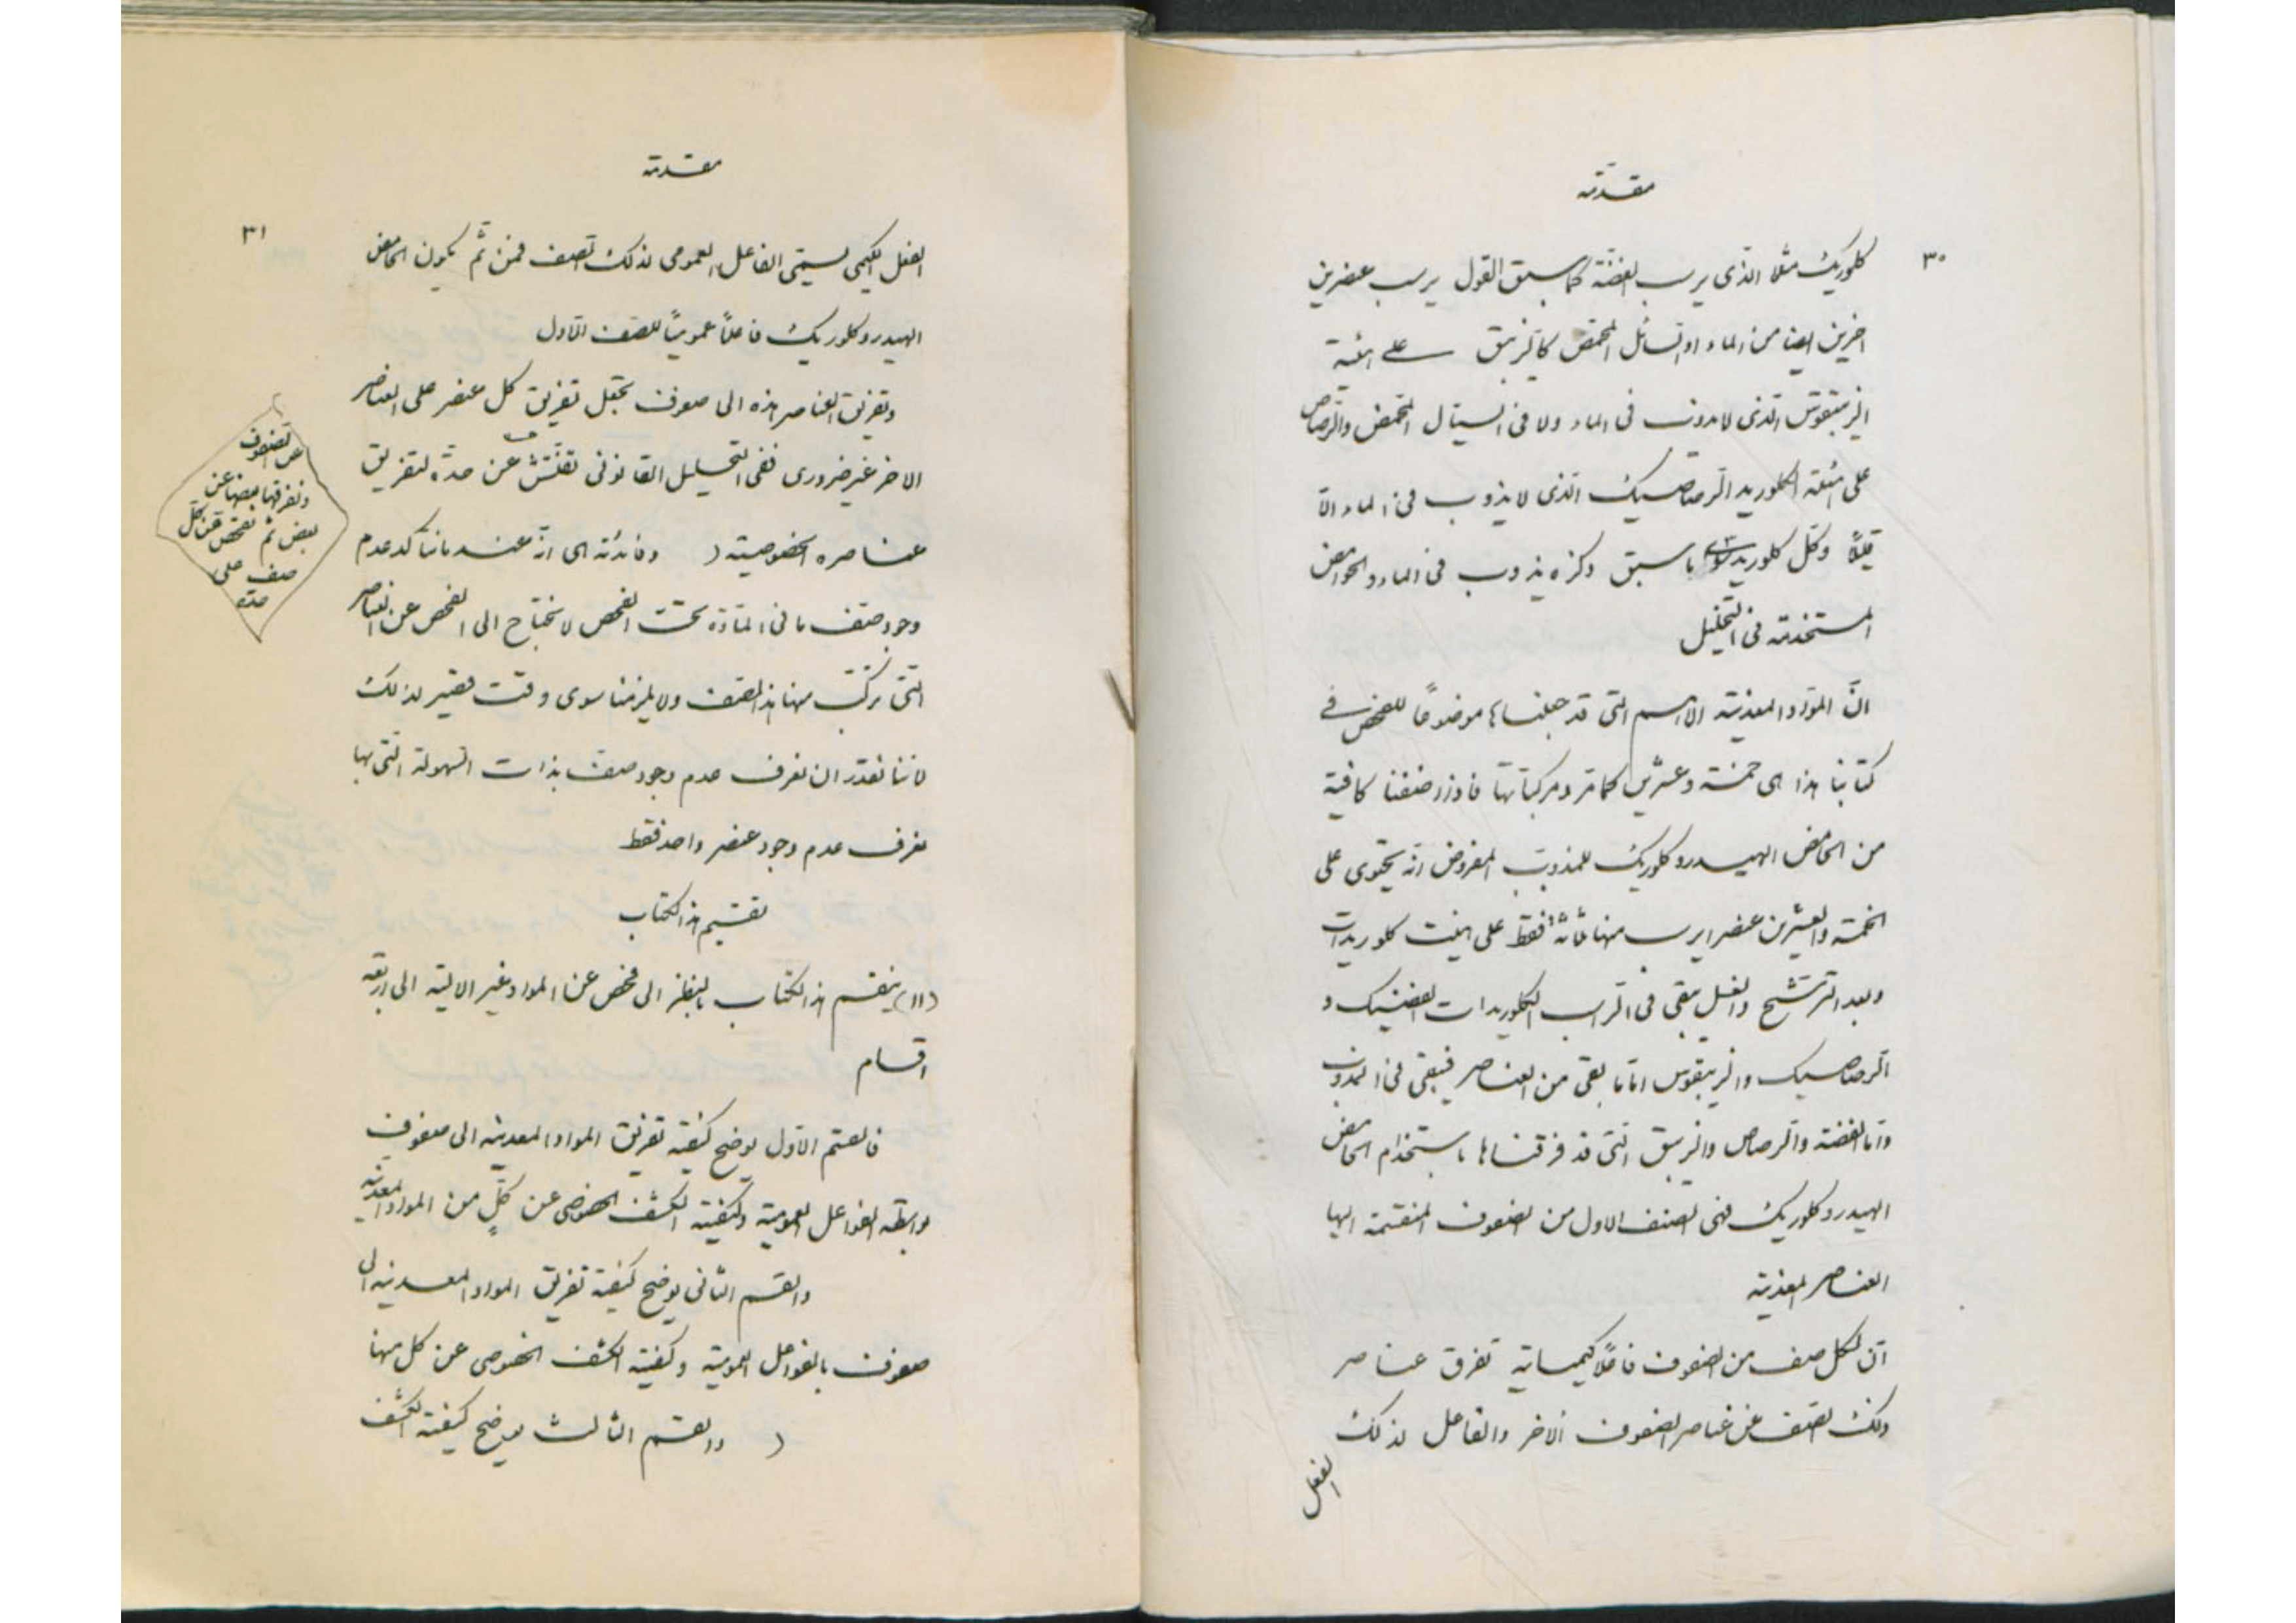 مقدمة
٣٠
كلوريك مثلا الذى يرسب الفضة كما سبق القول يرسب عنصرين
اخرين ايضا من الماء او السائل المحمض كالزيبق على هيئة
الزيبقوس الذى لا يذوب فى الماء ولا فى السيال المحمض والرصاص
على هيئة الكلوريد الرصاصيك الذى لا يذوب فى الماء الا
قليلاً وكل كلوريد سوى ما سبق ذكره يذوب فى الماء والحوامض
المستخدمة فى التحليل
انّ المواد المعدنية الاهم التى قد جعلناها موضوعاً للفحص فى
كتابنا هذا هى خمسة وعشرين كما مر ومركباتها فاذا اضفنا كافية
من الحامض الهيدروكلوريك للمذوب المفروض انه يحتوى على
الخمسة والعشرين عنصرا يرسب منها ثلاثة فقط على هيئت كلوريدات
وبعد الترشيح والغسل يبقى فى الراسب الكلوريدات الفضيك و
الرصاصيك والزيبقوس اما ما بقى من العناصر فيبقى فى المذوب
واما الفضة والرصاص والزيبق التى قد فرقناها باستخدام الحامض
الهيدروكلوريك فهى الصنف الاول من الصنوف المنقسمة اليها
العناصر المعدنية
ان لكل صنف من الصنوف فاعلاً كيمياية تفرق عناصر
ذلك الصنف عن عناصر الصنوف الاخر والفاعل لذلك
الفعل
مقدمة
٣١
الفعل الكيمى يسمّى الفاعل العمومى لذلك الصنف فمن ثمّ يكون الحامض
الهيدروكلوريك فاعلاً عمومياً للصنف الاول
وتفريق العناصر هذه الى صنوف يجعل تفريق كل عنصر على العناصر
الاخر غير ضرورى ففى التحليل القانونى نفتش عن صنف حدّه لتفريق
عناصره الخصوصية ( وفائدته هى انه عندما نتاكد عدم
وجود صنف ما فى المادة تحت الفحص لا نحتاج الى الفحص عن العناصر
التى تركب منها هذا الصنف ولا يلزمنا سوى وقت قصير لذلك
لاننا نقدر ان نعرف عدم وجود صنف بذات السهولة التى بها
نعرف عدم وجود عنصر واحد فقط
تقسيم هذا الكتاب
(١١) ينقسم هذا الكتاب بالنظر الى فحص عن المواد غير الالية الى اربعة
اقسام
فالقسم الاول يوضح كيفية تفريق المواد المعدنية الى صنوف
بواسطة الفواعل العمومية وكيفية الكشف الخصوصى عن كلٍّ من المواد المعدنية
والقسم الثانى يوضح كيفية تفريق المواد المعدنية الى
صنوف بالفواعل العمومية وكيفية الكشف الخصوصى عن كل منها
( والقسم الثالث يوضح كيفية الكشف
عن الصنوف
ونفرقها بعضها عن
بعض ثم نفحص عن كل
صنف على
حدته